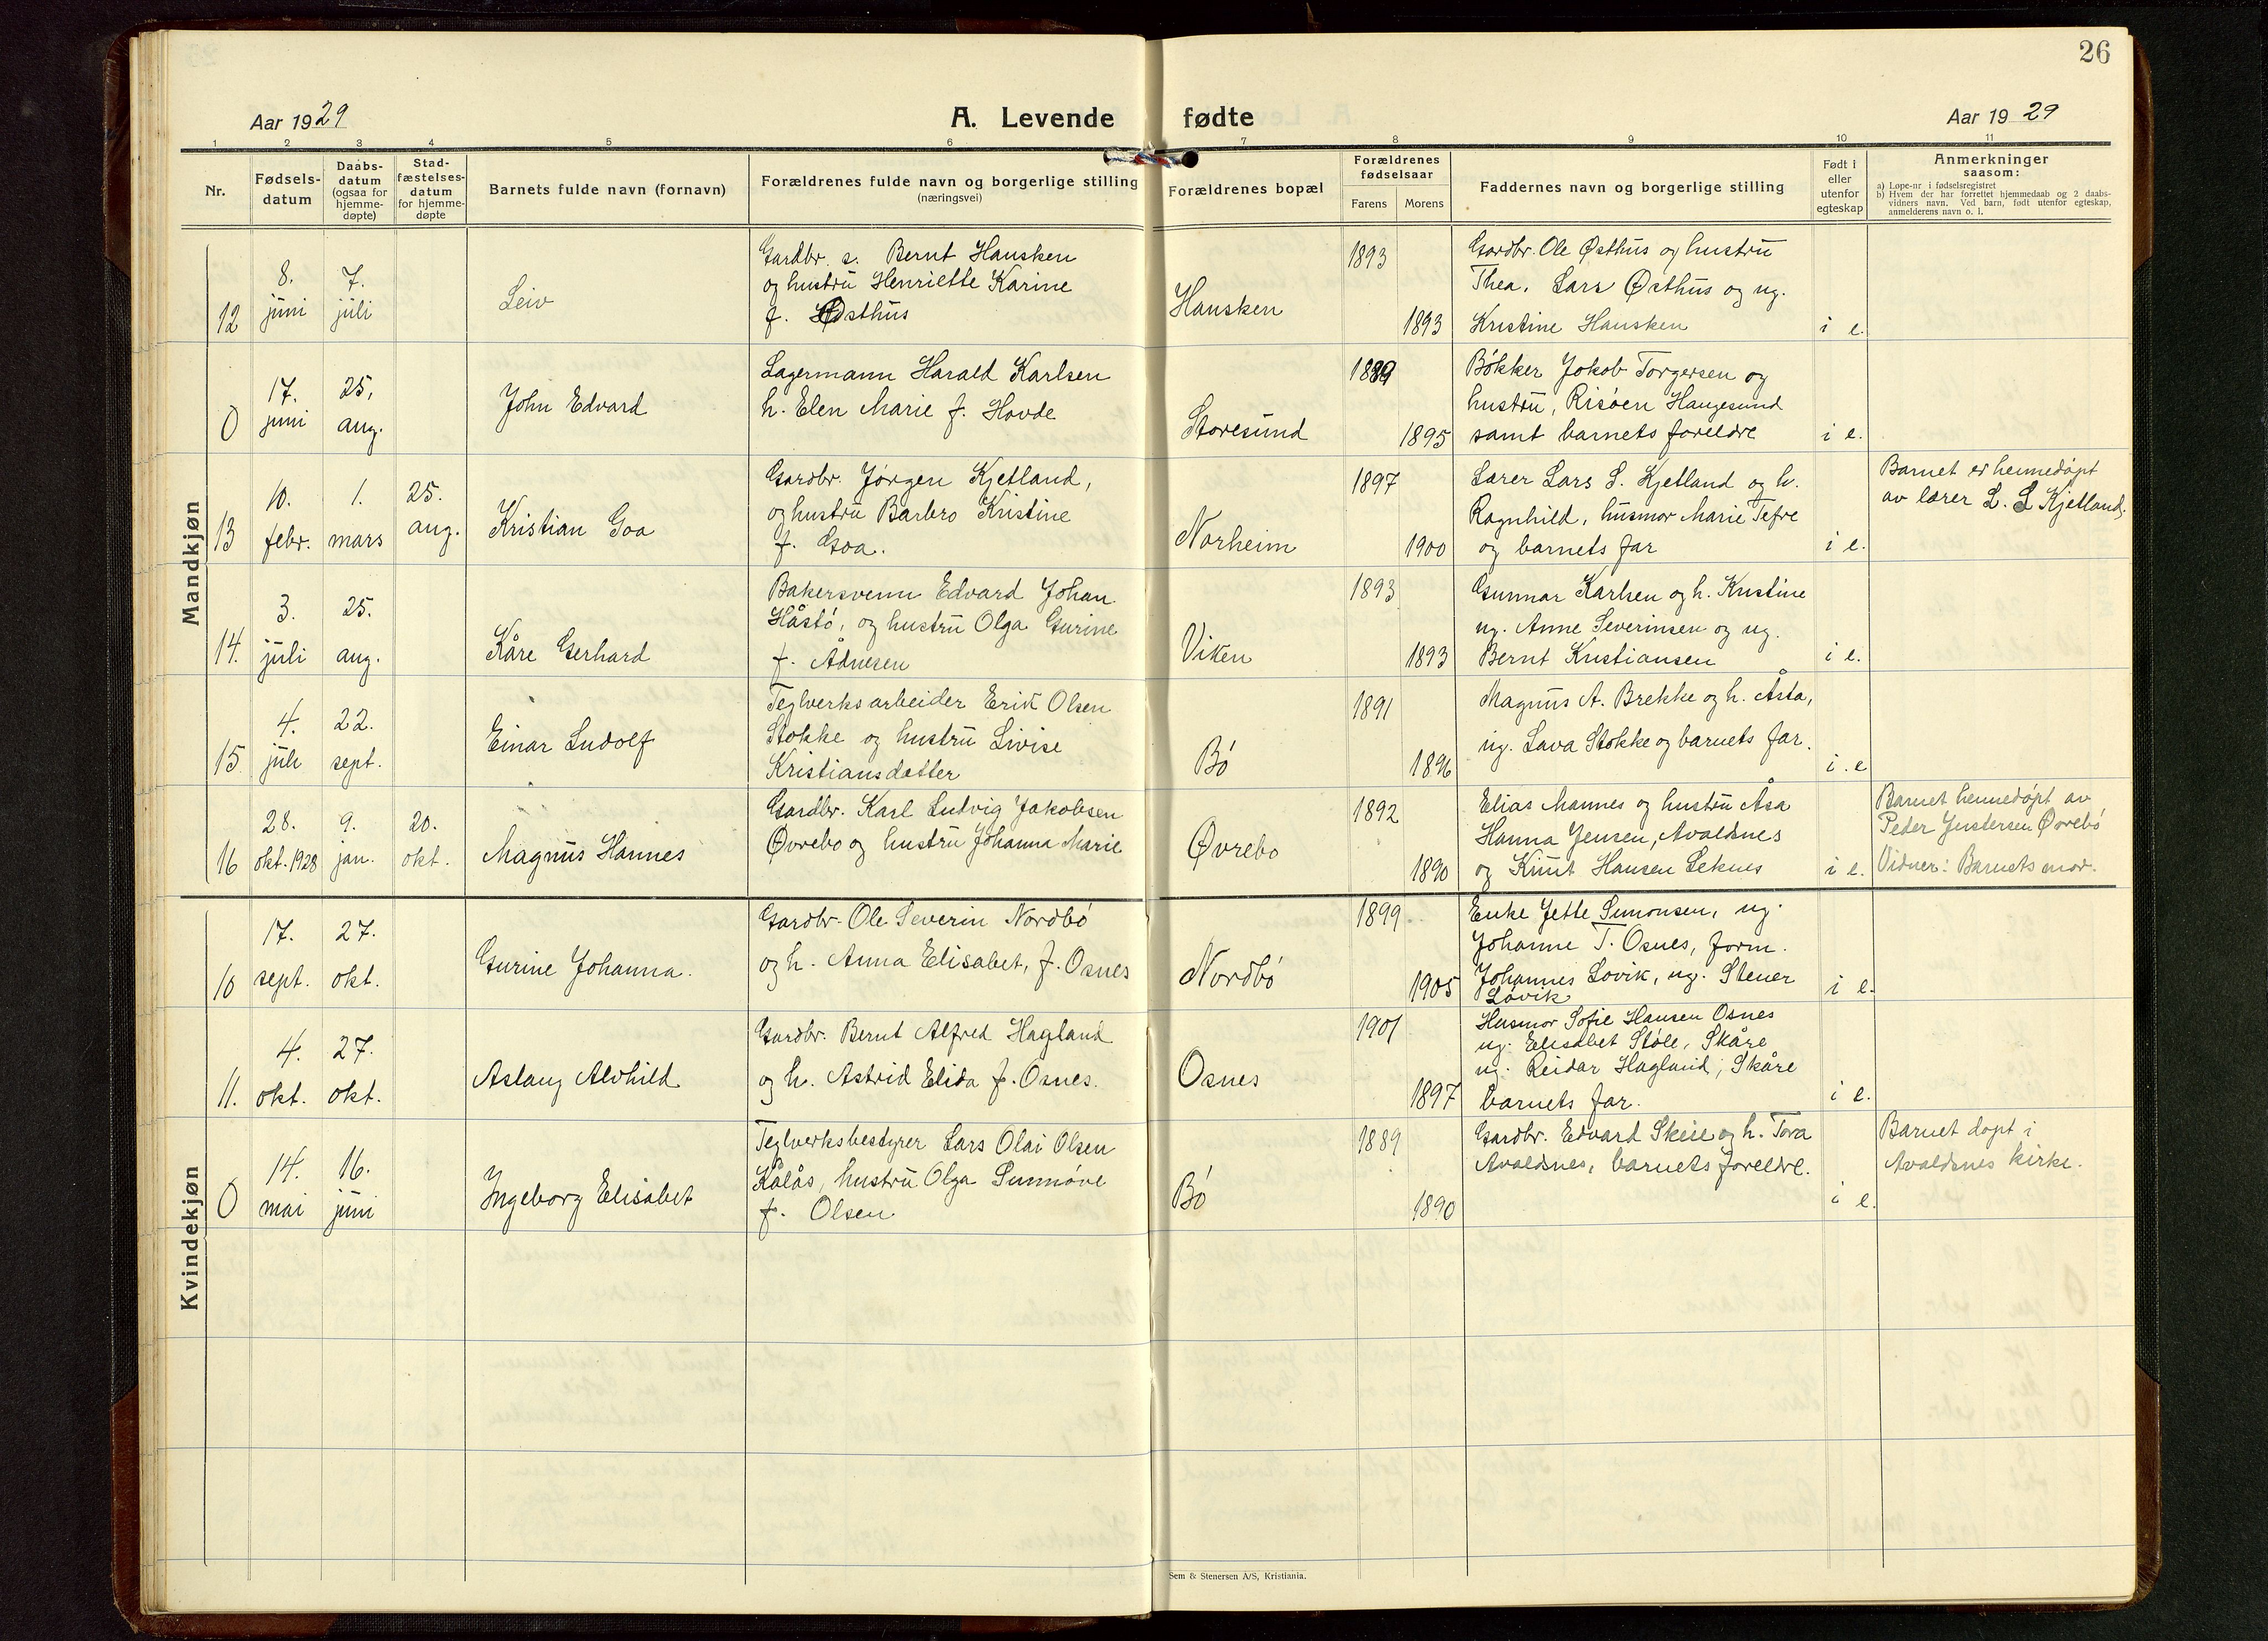 26
Aar 1929
A. Levende fødte
Aar 1929
1 2 3 4 5 6 7 8 9 10 11
Nr.
Fødsels-
datum
Daabs-
datum
(ogsaa for
hjemme-
døpte)
Stad-
fæstelses-
datum
for hjemme-
døpte
Barnets fulde navn (fornavn)
Forældrenes fulde navn og borgerlige stilling
(næringsvei)
Forældrenes bopæl
Forældrenes
fødselsaar
Farens Morens
Faddernes navn og borgerlige stilling
Født i
eller
utenfor
egteskap
Anmerkninger
saasom:
a) Løpe-nr i fødselsregistret
b) Hvem der har forrettet hjemmedaab og 2 daabs-
vidners navn. Ved barn, født utenfor egteskap,
anmelderens navn o. l.
Mandkjøn
12
8.
juni
7.
juli
Leiv
Gardbr. s. Bernt Hausken
og hustru Henriette Karine
f. Østhus
Hausken
1893
1893
Gardbr. Ole Østhus og hustru
Thea, Lars Østhus og ug.
Kristine Hausken
i e.
0
17.
juni
25.
aug.
John Edvard
Lagermann Harald Karlsen
h. Elen Marie f. Hovde
Storesund
1889
1895
Bøkker Jakob Torgersen og
hustru, Risøen Haugesund
samt barnets foreldre
i e.
13
10.
febr.
1.
mars
25.
aug.
Kristian Goa
Gardbr. Jørgen Kjetland,
og hustru Barbro Kristine
f. Goa.
Norheim
1897
1900
Lærer Lars L. Kjetland og h.
Ragnhild, husmor Marie Tefre
og barnets far
i e.
Barnet er hemmedøpt
av lærer L. L Kjetland.
14.
3.
juli
25.
aug.
Kåre Gerhard
Bakersvenn Edvard Johan
Håstø, og hustru Olga Gurine
f. Ådnesen
Viken
1893
1893
Gunnar Karlsen og h. Kristine
ug. Anne Severinsen og ug.
Bernt Kristiansen
i e.
15
4.
juli
22.
sept.
Einar Ludolf
Teglverksarbeider Erik Olsen
Stokke og hustru Livise
Kristiansdatter
Bø
1891
1896
Magnus A. Brekke og h. Åsta,
ug. Lava Stokke og barnets far.
i. e
16
28.
okt. 1928
9.
jan.
20.
okt.
Magnus Hannes
Gardbr. Karl Ludvig Jakobsen
Øvrebø og hustru Johanna Marie
Øvrebø
1892
1890
Elias Mannes og hustru Åsa
Hanna Jensen, Avaldsnes
og Knut Hansen Leknes
i e.
Barnet hemmedøpt av
Peder Øvrebø
Vidner: Barnets mor.
Kvindekjøn
10
17.
sept.
27.
okt.
Gurine Johanna.
Gardbr. Ole Severin Nordbø
og h. Anna Elisabet, f. Osnes
Nordbø
1899
1905
Enke Jette Simonsen, ug.
Johanne T. Osnes, form.
Johannes Løvik, ug. Stener
Løvik
i e.
11.
4.
okt.
27.
okt.
Aslaug Alvhild
Gardbr. Bernt Alfred Hagland
og h. Astrid Elida f. Osnes.
Osnes
1901
1897
Husmor Sofie Hansen Osnes
ug. Elisabet Støle, Skåre
ug. Reidar Hagland, Skåre
barnets far.
i e.
0
14.
mai
16.
juni
Ingeborg Elisabet
Teglverksbestyrer Lars Olai Olsen
Kålås, hustru Olga Sunnøve
f. Olsen
Bø
1889
1890
Gardbr. Edvard Skeie og h. Tora
Avaldsnes, barnets foreldre.
i e.
Barnet døpt i
Avaldsnes kirke.
Sem & Stenersen A/S, Kristiania.